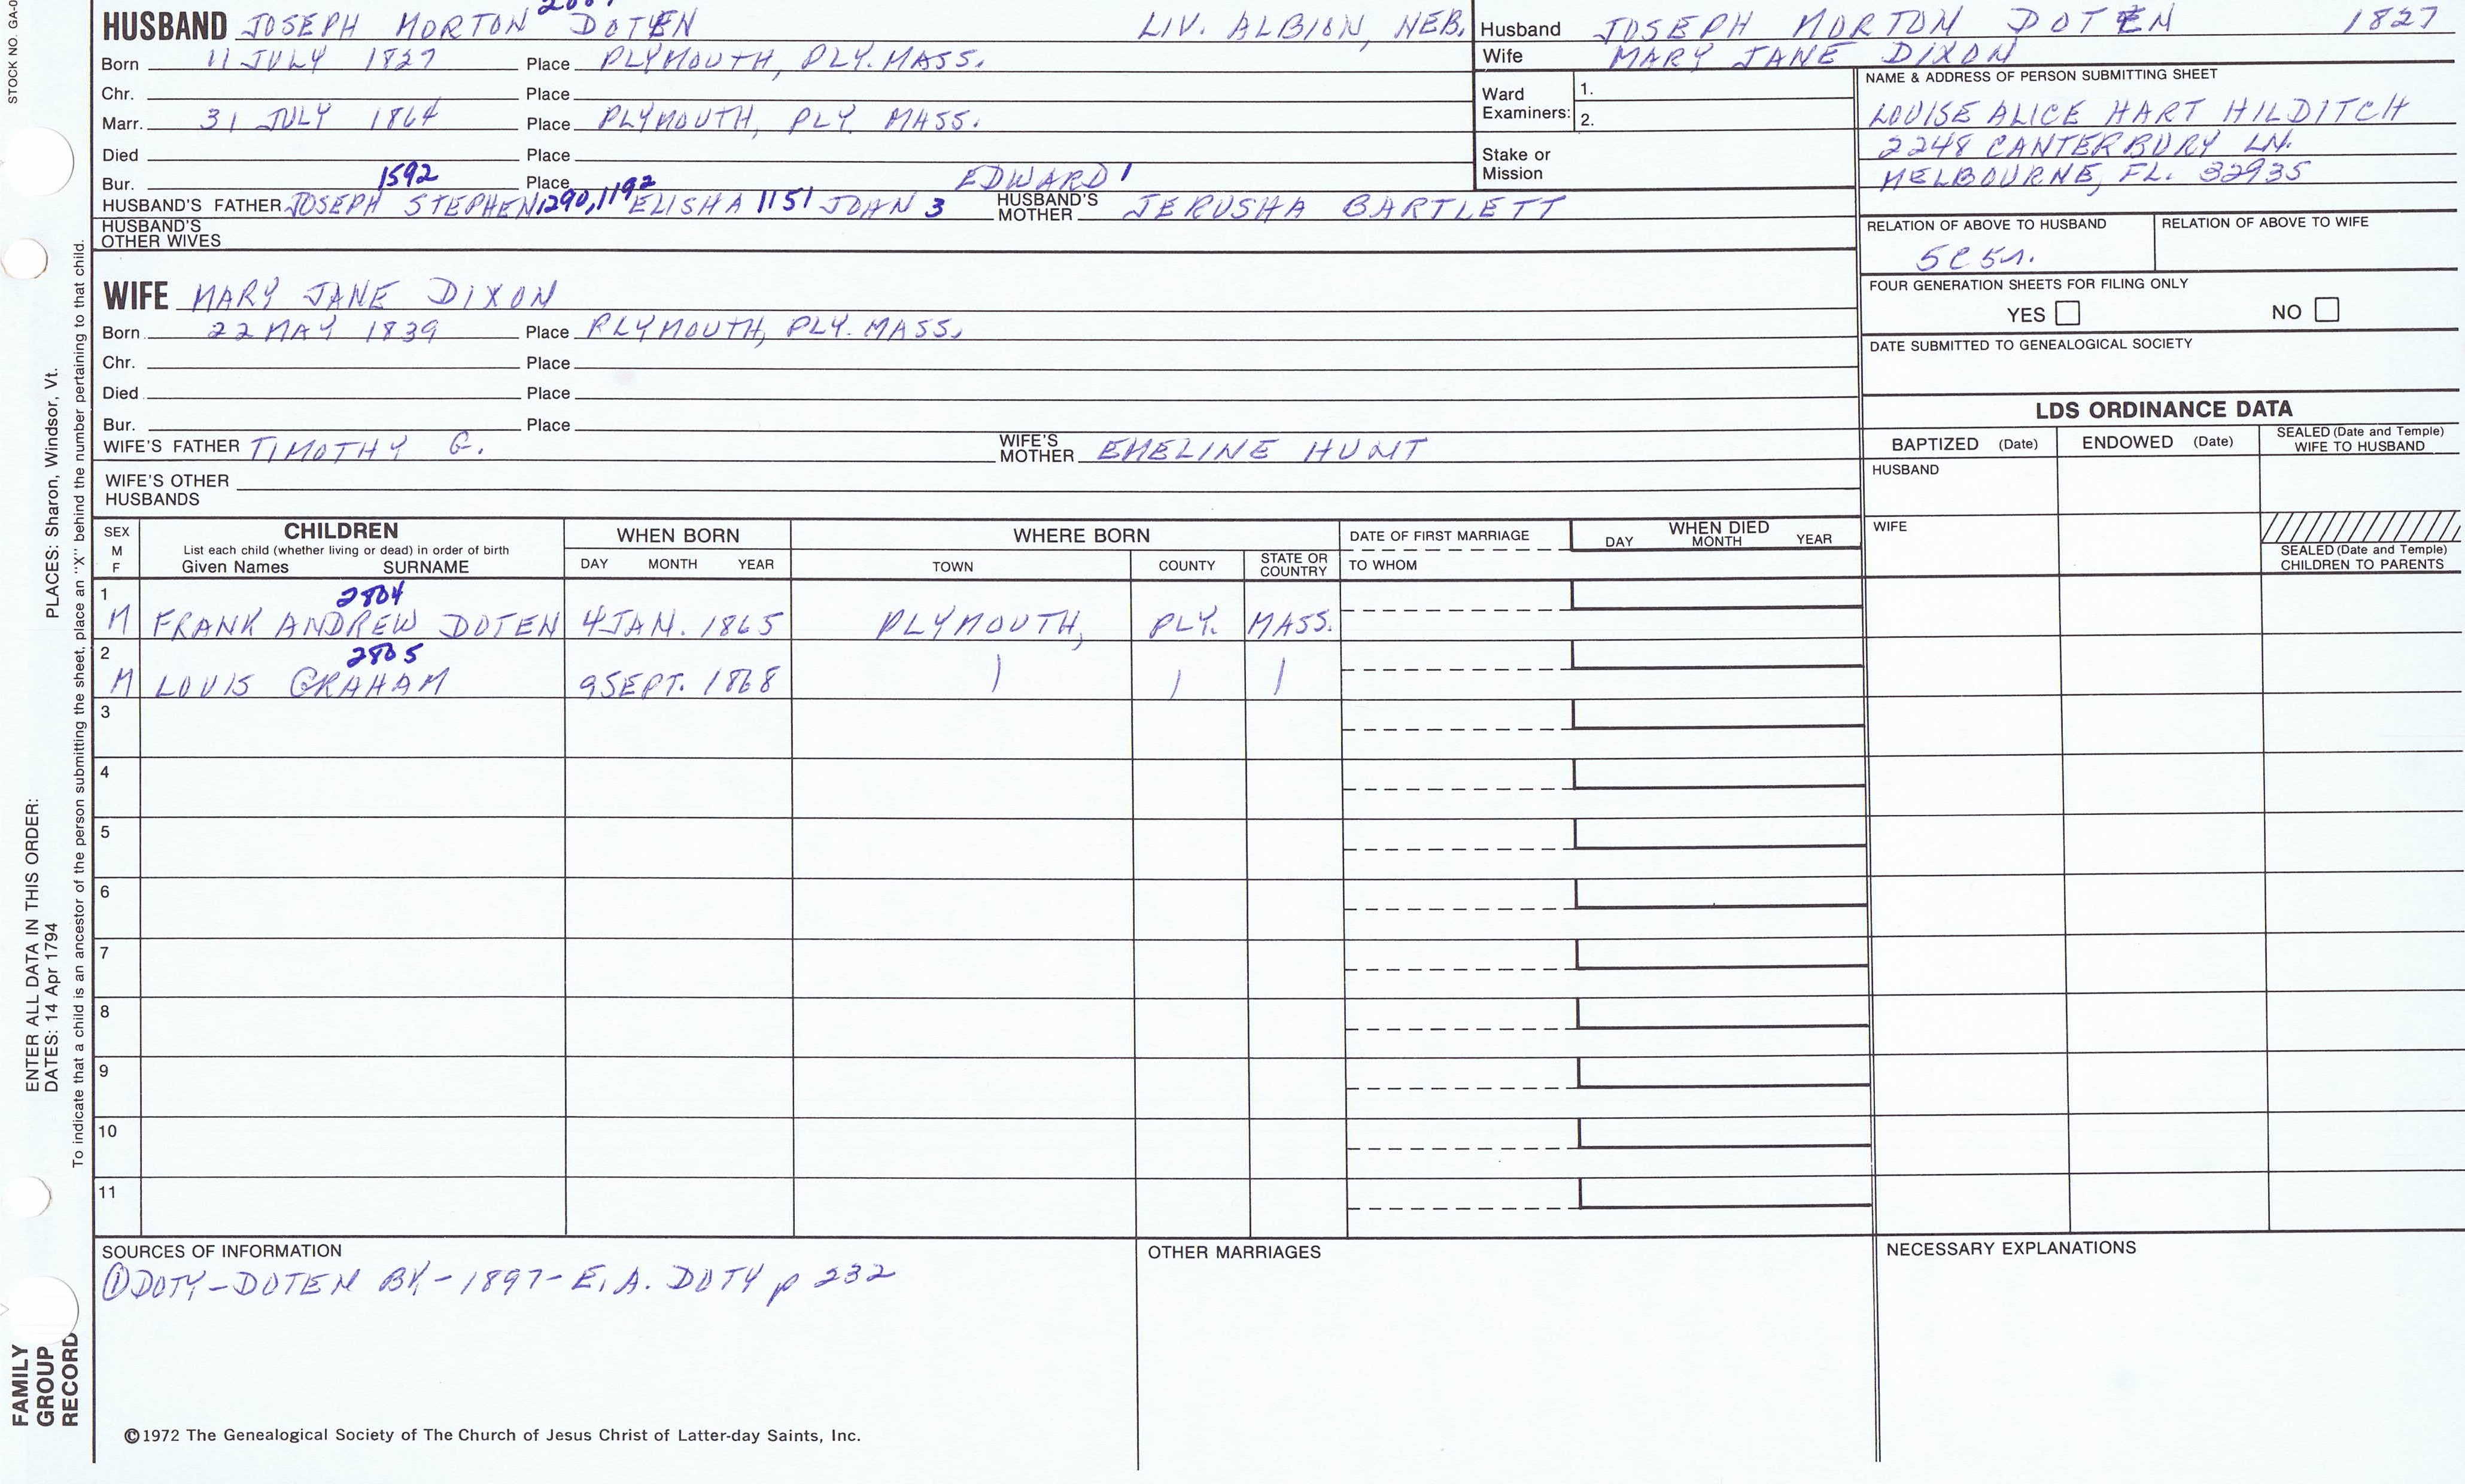 STOCK NO. GA-0
HUSBAND JOSEPH MORTON DOTEN LIV. ALBION, NEB.
Born 11 JULY 1827 Place PLYMOUTH, PLY. MASS.
Chr. Place
Marr. 31 JULY 1864 Place PLYMOUTH, PLY. MASS.
Died Place
Bur. 1592 Place EDWARD 1
HUSBAND'S FATHER JOSEPH STEPHEN 1290, 1192 ELISHA 1151 JOHN 3 HUSBAND'S MOTHER JERUSHA BARTLETT
HUSBAND'S OTHER WIVES
WIFE MARY JANE DIXON
Born 22 MAY 1839 Place PLYMOUTH, PLY. MASS.
Chr. Place
Died Place
Bur. Place
WIFE'S FATHER TIMOTHY G. WIFE'S MOTHER EMELINE HUNT
WIFE'S OTHER HUSBANDS
Husband JOSEPH MORTON DOTEN 1827
Wife MARY JANE DIXON
Ward Examiners: 1. 2.
Stake or Mission
NAME & ADDRESS OF PERSON SUBMITTING SHEET
LOUISE ALICE HART HILDITCH
2248 CANTERBURY LN.
MELBOURNE, FL. 32935
RELATION OF ABOVE TO HUSBAND RELATION OF ABOVE TO WIFE
5C5r.
FOUR GENERATION SHEETS FOR FILING ONLY
YES NO
DATE SUBMITTED TO GENEALOGICAL SOCIETY
LDS ORDINANCE DATA
BAPTIZED (Date) ENDOWED (Date) SEALED (Date and Temple) WIFE TO HUSBAND
HUSBAND
WIFE
SEALED (Date and Temple) CHILDREN TO PARENTS
SEX M F
CHILDREN
List each child (whether living or dead) in order of birth
Given Names SURNAME
WHEN BORN
DAY MONTH YEAR
WHERE BORN
TOWN COUNTY STATE OR COUNTRY
DATE OF FIRST MARRIAGE
TO WHOM
WHEN DIED
DAY MONTH YEAR
1 2804
M FRANK ANDREW DOTEN 4 JAN. 1865 PLYMOUTH, PLY. MASS.
2 2805
M LOUIS GRAHAM 9 SEPT. 1868 | | |
3
4
5
6
7
8
9
10
11
SOURCES OF INFORMATION
① DOTY-DOTEN BK-1897-E.A. DOTY p 232
OTHER MARRIAGES
NECESSARY EXPLANATIONS
©1972 The Genealogical Society of The Church of Jesus Christ of Latter-day Saints, Inc.
ENTER ALL DATA IN THIS ORDER:
DATES: 14 Apr 1794
PLACES: Sharon, Windsor, Vt.
To indicate that a child is an ancestor of the person submitting the sheet, place an "X" behind the number pertaining to that child.
FAMILY
GROUP
RECORD